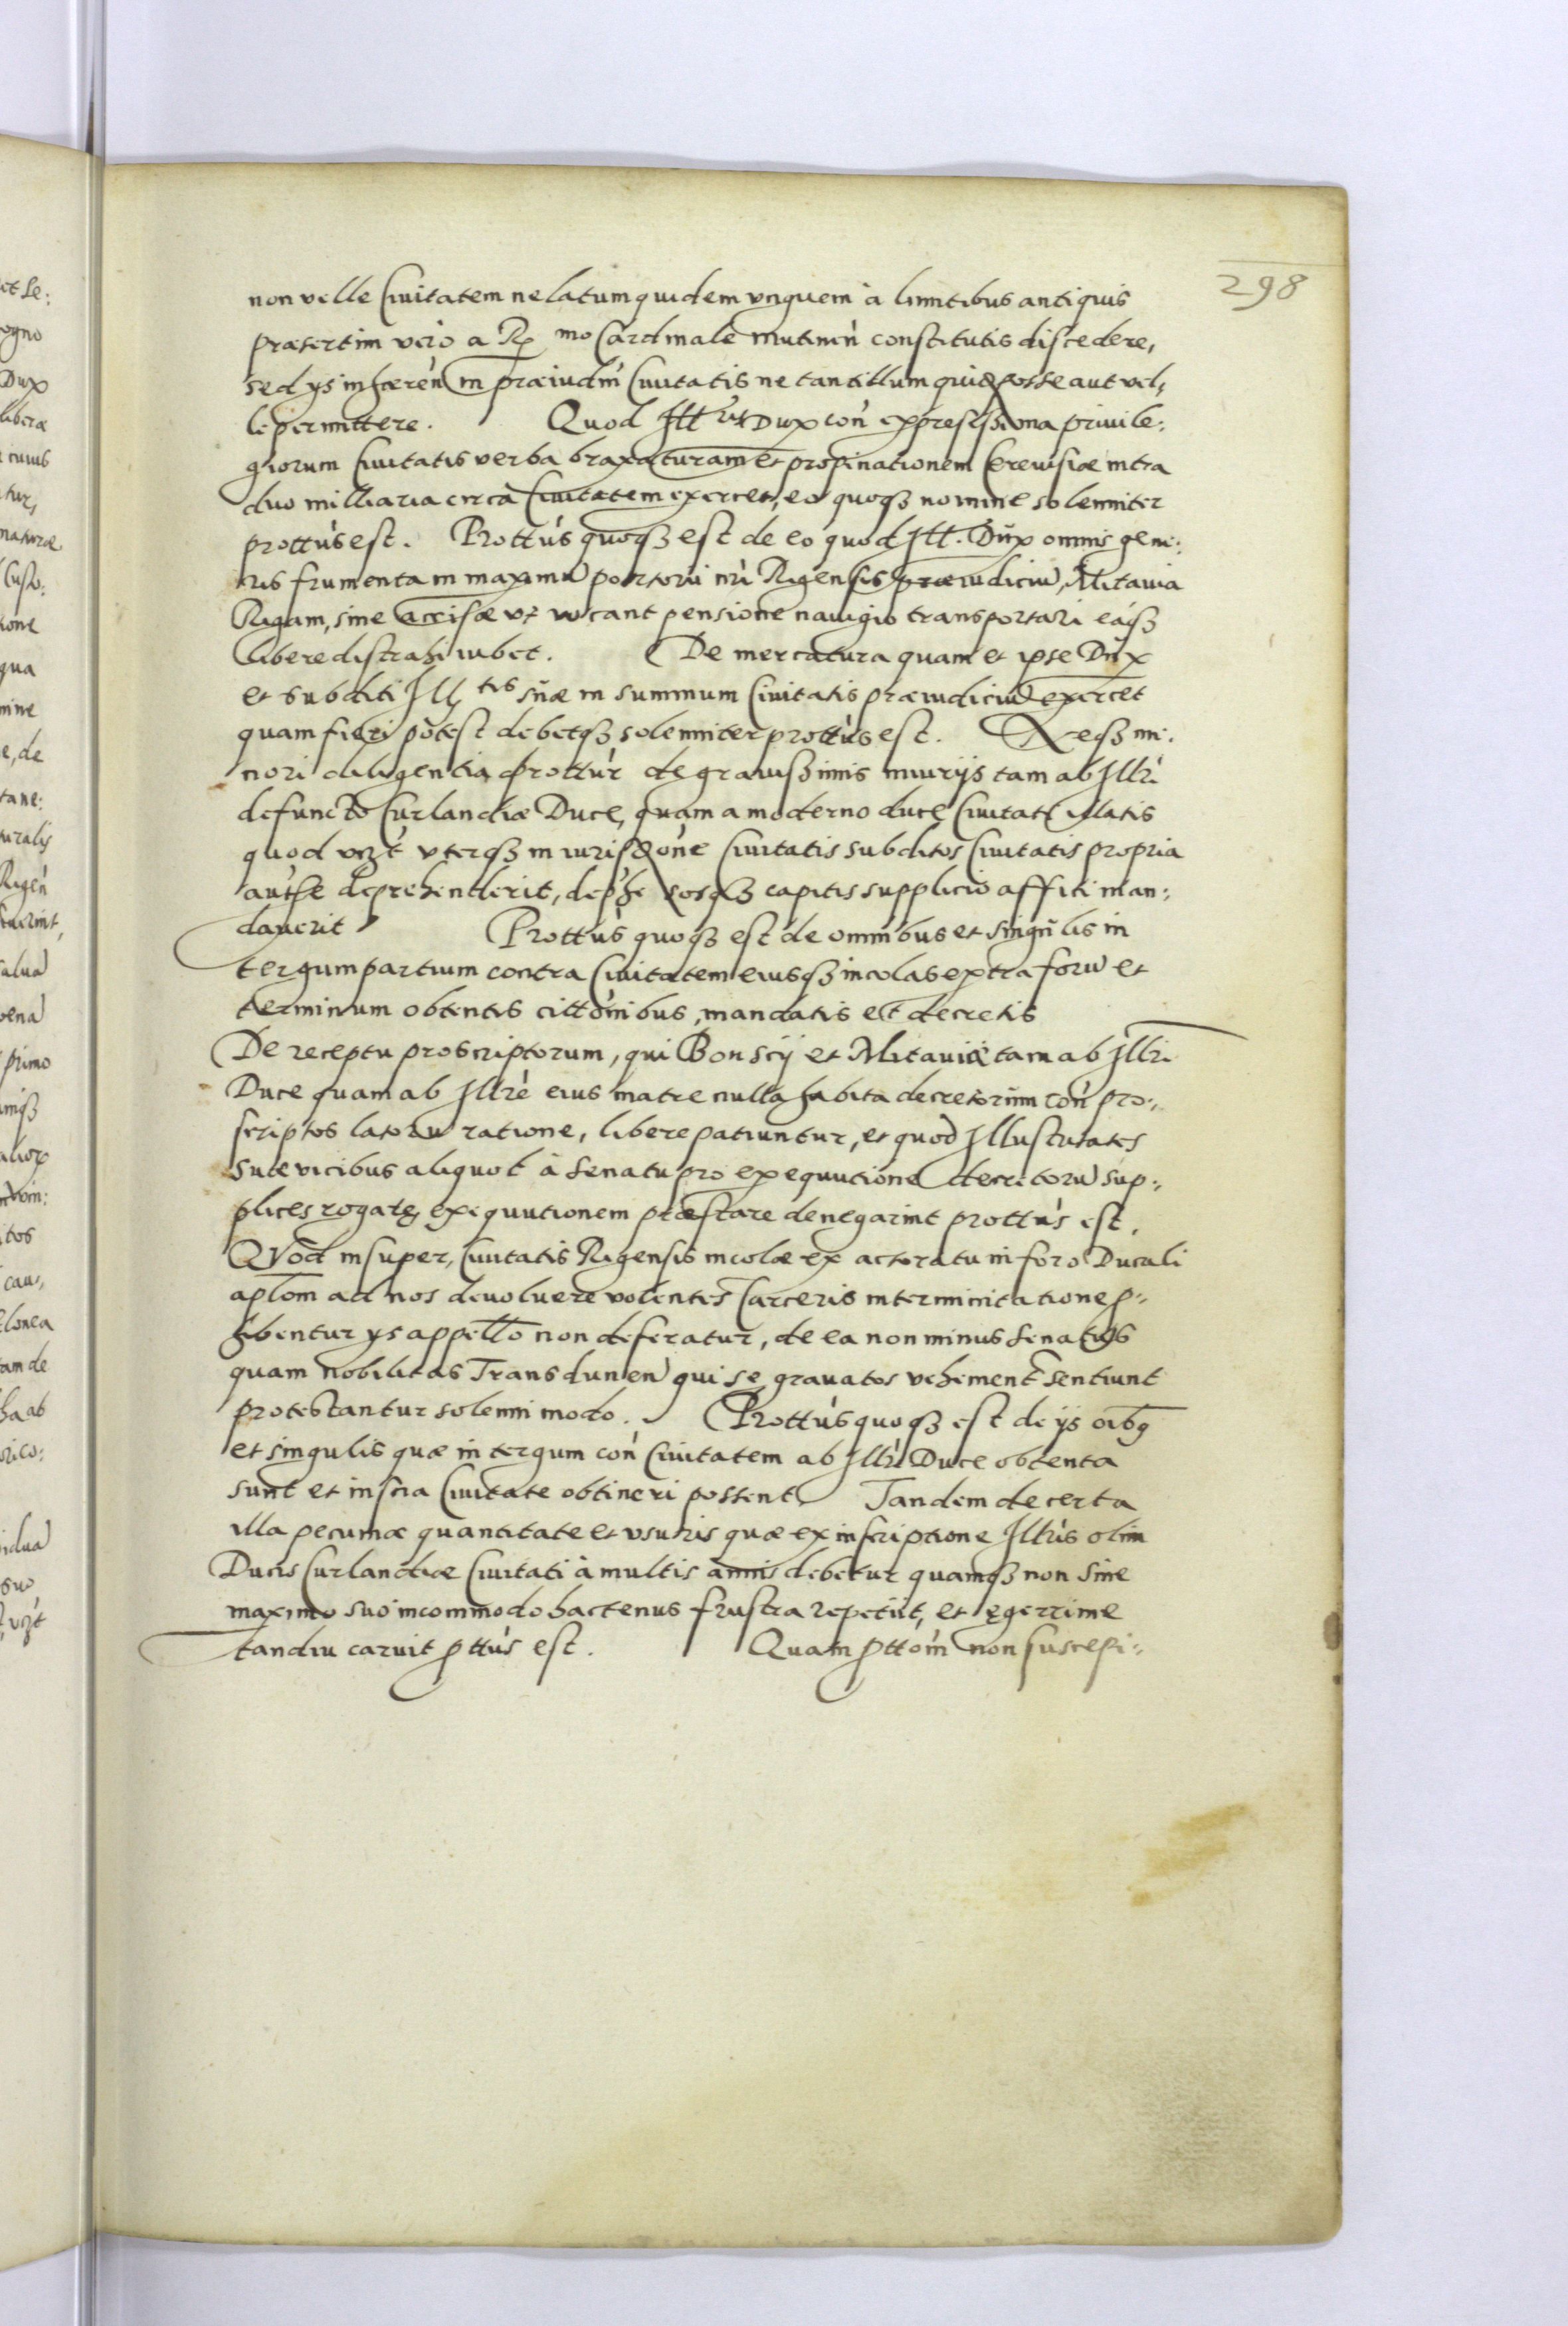 298
non velle Ciuitatem ne latum quidem vnguem à limitibus antiquis
præsertim vero a R mo Cardinale mutinen̄ constitutis discedere,
sed ys inhæren̄ in præiudm̄ Ciuitatis ne tantillum quid posse aut vel,
le permittere. Quod Ill Dux con̄ expressissima priuile:
giorum Ciuitatis verba braxaturam et propinationem Cereuisiæ intra
duo milliaria circa Ciuitatem exercet, eo quoqꝫ nomine solenniter
prottūs est. Prottūs quoqꝫ est de eo quod Ill. Dux omnis gene:
ris frumenta in maximū portorii nr̄i Rigensis præiudiciū, Mitauia
Rigam, sine accisæ vt vocant pensione nauigio transportari eáqꝫ
libere distrahi iubet. De mercatura quam et ipse Dux
et subditi Ill tis suæ in summum Ciuitatis præiudiciū exercet
quam fieri potest debetqꝫ solenniter prottūs est. Neqꝫ mi:
nori diligentia prottūr de grauissimis iniurijs tam ab Illri
defuncto Curlandiæ Duce, quam a moderno duce Ciuitati illatis
quod vizt vterqꝫ in iurisdone Ciuitatis subditos Ciuitatis propria
authe deprehenderit, dep̄he sosqꝫ capitis supplicio affici man:
dauerit Prottūs quoqꝫ est de omnibus et singulis in
tergum partium contra Ciuitatem eiusqꝫ incolas extra forū et
terminum obtentis cittōnibus, mandatis et decretis
De receptu proscriptorum, qui Bonscij et Mitauiæ tam ab Illri
Duce quam ab Illrē eius matre nulla habita decretorum con̄ pro:
scriptos latorū ratione, libere patiuntur, et quod Illustritates
suæ vicibus aliquot à Senatu pro exequutione decretorū sup:
plices rogatæ, exequutionem præstare denegarint prottūs est.
Quod insuper, Ciuitatis Rigensis incolæ ex actoratu in foro Ducali
aplom̄ ad nos deuoluere volentes Carceris interminatione p:
hibentur ys appello non deferatur, de ea non minus Senatus
quam nobilitas Transdunen̄ qui se grauatos vehement̄ sentiunt
protestantur solenni modo. Prottūs quoqꝫ est de ijs oībꝫ
et singulis quæ in tergum con̄ Ciuitatem ab Illrī Duce obtenta
sunt et inscia Ciuitate obtineri possent. Tandem de certa
illa pecuniæ quantitate et vsuris quæ ex inscriptione Illrīs olim
Ducis Curlandiæ Ciuitati à multis annis debetur quamqꝫ non sine
maximo suo incommodo hactenus frustra repetiit, et ęgerrime
tandiu caruit pttūs est. Quam pttōm non suscepi: